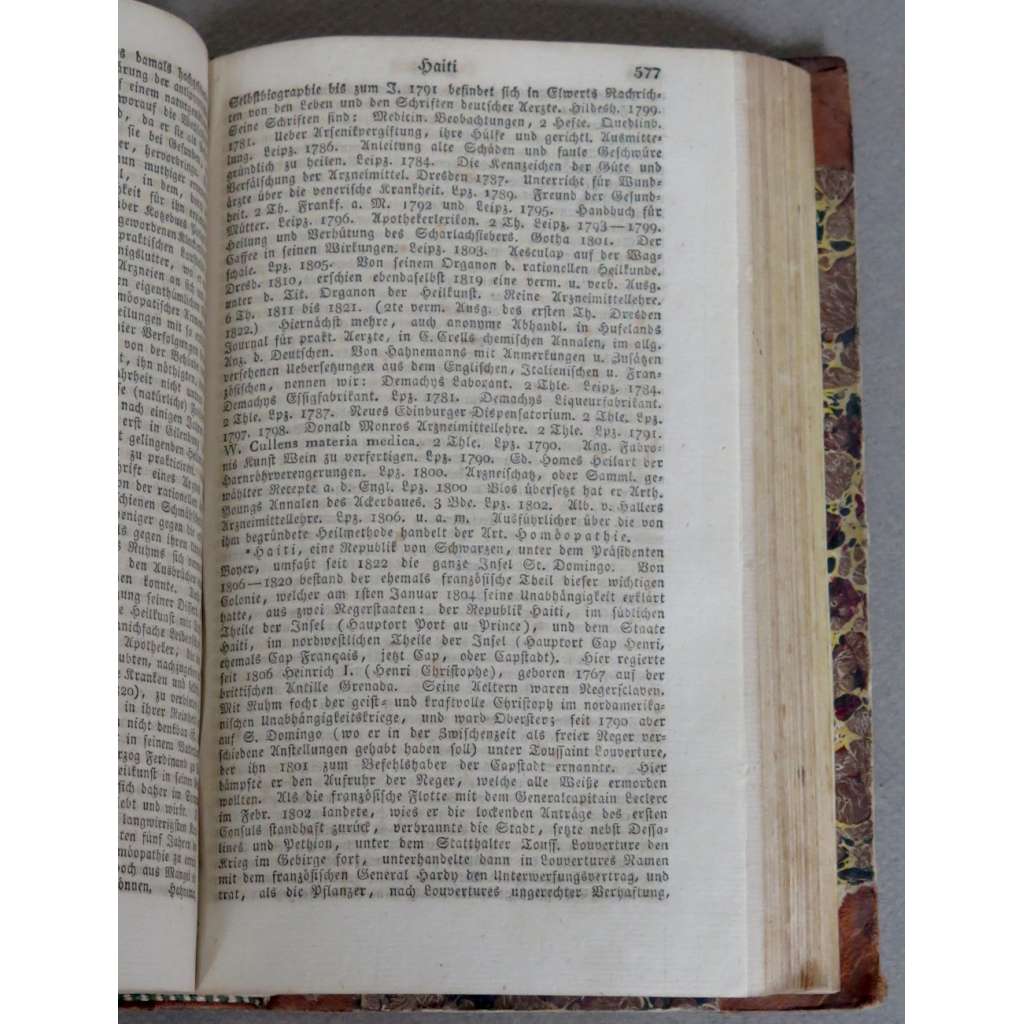 s damals hochge
rung der
f einem naturge
worauf die
, da er sie
sie bei Gesunden
r, hervorbringen
nun muthiger
l, in dem, durch
gkeit für ihn
ber Kotzebues
gewordenen
praktischen
nigslutter, wo
Arzneien an sich
en eigenthümlichen
möopatischer
eilungen mit so
ier Verfolgungen
von der Behörde
t, ihn nöthigten
ahrheit nicht
se (natürliche)
nach einigen Jahren
erst in Eilenburg
t gelingenden
zu prakticiren
hrift eines
on der rationellen
schienen
eniger gegen die
s gegen ihren
Ruhms sich
den Ausbrüchen
en konnte.
ung seiner
e Heilkunst mit
annichfache
Apotheker, die
ubten, nachzu
e Kranken und
20), zu
in ihrer Reinheit
n nicht denkbar
in seinem
rzog Ferdinand zu
eilkunst in seinem
sich daher im
ebt und wirkt.
langwierigsten
ten fünf Jahren
möopathie zu
doch aus Mangel
önnen,
Haiti 577
Selbstbiographie bis zum J. 1791 befindet sich in Elwerts Nachrich-
ten von den Leben und den Schriften deutscher Aerzte. Hildesh. 1799.
Seine Schriften sind: Medicin. Beobachtungen, 2 Hefte. Quedlinb.
1781. Ueber Arsenikvergiftung, ihre Hülfe und gerichtl. Ausmitte-
lung. Leipz. 1786. Anleitung alte Schäden und faule Geschwüre
gründlich zu heilen. Leipz. 1784. Die Kennzeichen der Güte und
Verfälschung der Arzneimittel. Dresden 1787. Unterricht für Wund-
ärzte über die venerische Krankheit. Lpz. 1789. Freund der Gesund-
heit. 2 Th. Frankf. a. M. 1792 und Leipz. 1795. Handbuch für
Mütter. Leipz. 1796. Apothekerlexikon. 2 Th. Leipz. 1793—1799.
Heilung und Verhütung des Scharlachfiebers. Gotha 1801. Der
Caffee in seinen Wirkungen. Leipz. 1803. Aesculap auf der Wag-
schale. Lpz. 1805. Von seinem Organon d. rationellen Heilkunde.
Dresd. 1810, erschien ebendaselbst 1819 eine verm. u. verb. Ausg.
unter d. Tit. Organon der Heilkunst. Reine Arzneimittellehre.
6 Th. 1811 bis 1821. (2te verm. Ausg. des ersten Th. Dresden
1822.) Hiernächst mehre, auch anonyme Abhandl. in Hufelands
Journal für prakt. Aerzte, in C. Crells chemischen Annalen, im allg.
Anz. d. Deutschen. Von Hahnemanns mit Anmerkungen u. Zusätzen
versehenen Uebersetzungen aus dem Englischen, Italienischen u. Fran-
zösischen, nennen wir: Demachys Laborant. 2 Thle. Leipz. 1784.
Demachys Essigfabrikant. Lpz. 1781. Demachys Liqueurfabrikant.
2 Thle. Lpz. 1787. Neues Edinburger Dispensatorium. 2 Thle. Lpz.
1797. 1798. Donald Monros Arzneimittellehre. 2 Thle. Lpz. 1791.
W. Cullens materia medica. 2 Thle. Lpz. 1790. Ang. Fabro-
nis Kunst Wein zu verfertigen. Lpz. 1790. Ed. Homes Heilart der
Harnröhrverengerungen. Lpz. 1800. Arzneischatz, oder Samml. ge-
wählter Recepte a. d. Engl. Lpz. 1800 Blos übersetzt hat er Arth.
Youngs Annalen des Ackerbaues. 3 Bde. Lpz. 1802. Alb. v. Hallers
Arzneimittellehre. Lpz. 1806. u. a. m. Ausführlicher über die von
ihm begründete Heilmethode handelt der Art. Homöopathie.
*Haiti, eine Republik von Schwarzen, unter dem Präsidenten
Boyer, umfaßt seit 1822 die ganze Insel St. Domingo. Von
1806—1820 bestand der ehemals französische Theil dieser wichtigen
Colonie, welcher am 1sten Januar 1804 seine Unabhängigkeit erklärt
hatte, aus zwei Negerstaaten: der Republik Haiti, im südlichen
Theile der Insel (Hauptort Port au Prince), und dem Staate
Haiti, im nordwestlichen Theile der Insel (Hauptort Cap Henri,
ehemals Cap Français, jetzt Cap, oder Capstadt). Hier regierte
seit 1806 Heinrich I. (Henri Christophe), geboren 1767 auf der
brittischen Antille Grenada. Seine Aeltern waren Negersclaven.
Mit Ruhm focht der geist- und kraftvolle Christoph im nordamerika-
nischen Unabhängigkeitskriege, und ward Oberster; seit 1790 aber
auf S. Domingo (wo er in der Zwischenzeit als freier Neger ver-
schiedene Anstellungen gehabt haben soll) unter Toussaint Louverture,
der ihn 1801 zum Befehlshaber der Capstadt ernannte. Hier
dämpfte er den Aufruhr der Neger, welche alle Weiße ermorden
wollten. Als die französische Flotte mit dem Generalcapitain Leclerc
im Febr. 1802 landete, wies er die lockenden Anträge des ersten
Consuls standhaft zurück, verbrannte die Stadt, setzte nebst Dessa-
lines und Pethion, unter dem Statthalter Touss. Louverture den
Krieg im Gebirge fort, unterhandelte dann in Louvertures Namen
mit dem französischen General Hardy den Unterwerfungsvertrag, und
trat, als die Pflanzer, nach Louvertures ungerechter Verhaftung,